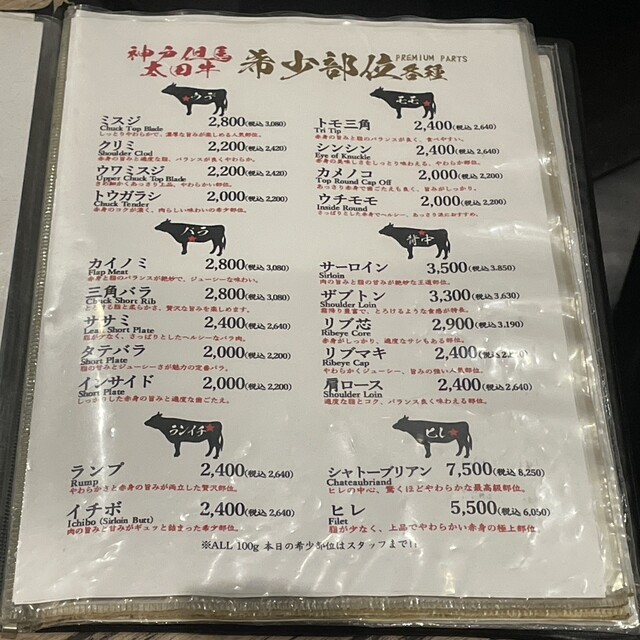 神戸但馬
太田牛
希少部位各種
PREMIUM PARTS
ウデ
ミスジ 2,800(税込 3,080)
Chuck Top Blade
しっとりやわらかで、濃厚な旨みが楽しめる人気部位。
クリミ 2,200(税込 2,420)
Shoulder Clod
赤身の旨みと適度な脂、バランスが良くやわらか。
ウワミスジ 2,200(税込 2,420)
Upper Chuck Top Blade
きめ細かくあっさり上品、やわらかい部位。
トウガラシ 2,000(税込 2,200)
Chuck Tender
赤身のコクが濃く、肉らしい味わいの希少部位。
モモ
トモ三角 2,400(税込 2,640)
Tri Tip
赤身の旨みと脂のバランスが良く、食べやすい。
シンシン 2,400(税込 2,640)
Eye of Knuckle
赤身の美味しさをしっとり味わえる、やわらか部位。
カメノコ 2,000(税込 2,200)
Top Round Cap Off
あっさり赤身で歯ごたえも良く、旨みがしっかり。
ウチモモ 2,000(税込 2,200)
Inside Round
さっぱりとした赤身でヘルシー、あっさり派におすすめ。
バラ
カイノミ 2,800(税込 3,080)
Flap Meat
赤身と脂のバランスが絶妙で、ジューシーな味わい。
三角バラ 2,800(税込 3,080)
Chuck Short Rib
とろける脂と柔らかさ、贅沢な旨みを楽しめます。
ササミ 2,400(税込 2,640)
Lean Short Plate
脂が少なく、さっぱりとしたヘルシーなバラ肉。
タテバラ 2,000(税込 2,200)
Short Plate
脂の旨みとジューシーさが魅力の定番バラ。
インサイド 2,000(税込 2,200)
Short Plate
しっかりした赤身の旨みと適度な歯ごたえ。
背中
サーロイン 3,500(税込 3.850)
Sirloin
肉の旨みと脂の甘みが絶妙な王道部位。
ザブトン 3,300(税込 3,630)
Shoulder Loin
霜降り豊富で、とろけるような食感が特長。
リブ芯 2,900(税込 3,190)
Ribeye Core
赤身がしっかり、適度なサシもある部位。
リブマキ 2,400(税込
Ribeye Cap
やわらかくジューシー、旨みの強い人気部位。
肩ロース 2,400(税込 2,640)
Shoulder Loin
適度な脂とコク、バランス良く味わえる部位。
ランイチ
ランプ 2,400(税込 2,640)
Rump
やわらかさと赤身の旨みが両立した贅沢部位。
イチボ 2,400(税込 2,640)
Ichibo (Sirloin Butt)
肉の旨みと甘みがギュッと詰まった希少部位。
ヒレ
シャトーブリアン 7,500(税込 8,250)
Chateaubriand
ヒレの中心、驚くほどやわらかな最高級部位。
ヒレ 5,500(税込 6,050)
Filet
脂が少なく、上品でやわらかい赤身の極上部位。
※ALL 100g 本日の希少部位はスタッフまで!!